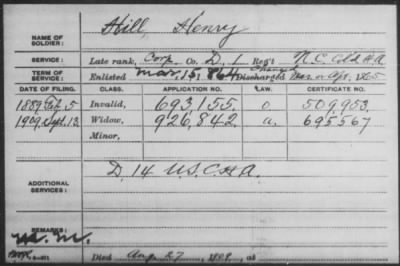 NAME OF SOLDIER: Hill, Henry
SERVICE: Late rank, Corp. Co. D, 1 Reg't N.C. Cold. H.A.
TERM OF SERVICE: Enlisted Mar. 15, 1864 Discharged Mar. or Apr., 1865
DATE OF FILING. CLASS. APPLICATION NO. LAW. CERTIFICATE NO.
1889 5 Invalid, 693,155 509,953.
1909 Sept. 13 Widow, 926,842 a. 695567
Minor,
ADDITIONAL SERVICES: D. 14 U.S.C.H.A.
REMARKS:
Died Aug 27, 1909, at